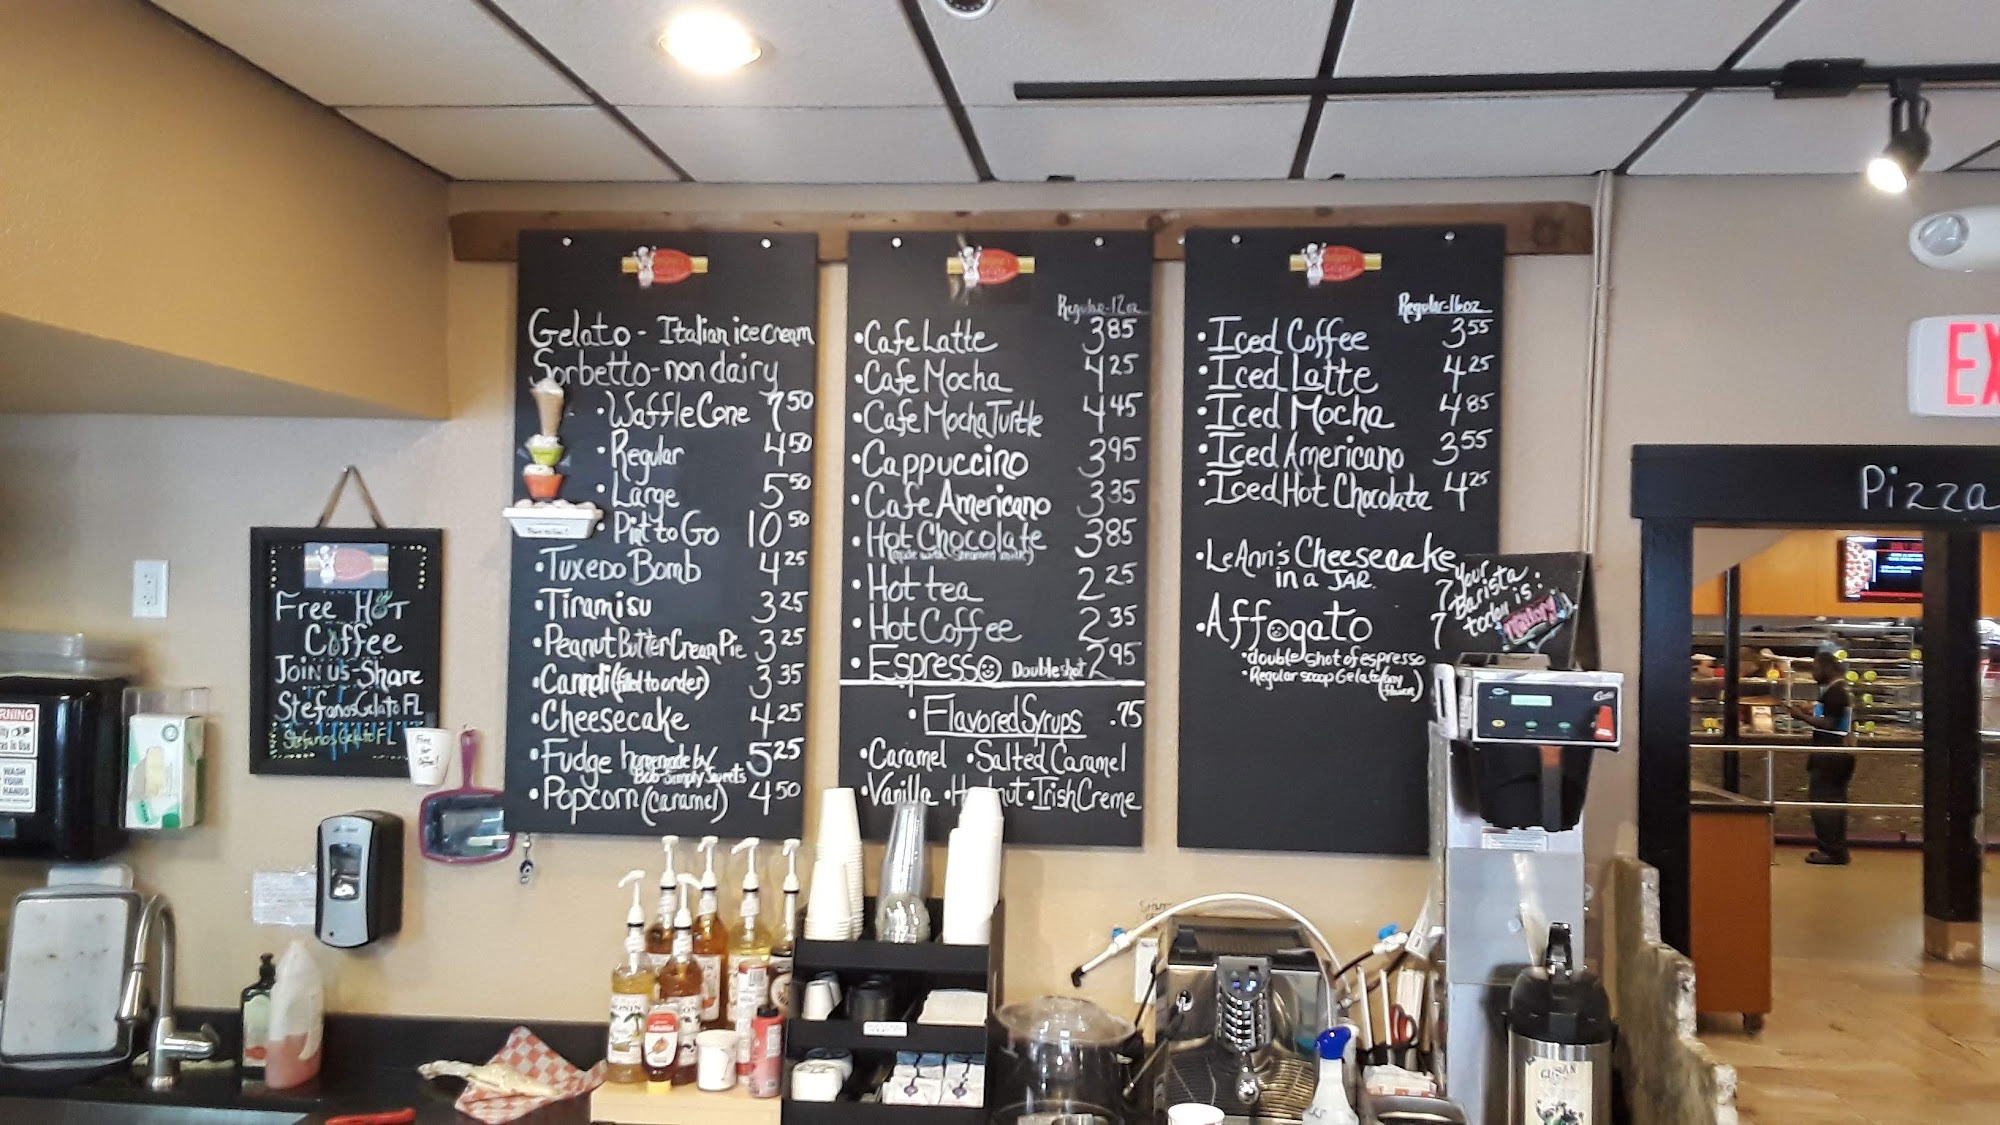 Gelato - Italian ice cream
Sorbetto - non dairy
• Waffle Cone 7.50
• Regular 4.50
• Large 5.50
• Pint to Go 10.50
• Tuxedo Bomb 4.25
• Tiramisu 3.25
• Peanut Butter Cream Pie 3.25
• Cannoli (filled to order) 3.35
• Cheesecake 4.25
• Fudge homemade by 5.25
Bob Simply Sweets
• Popcorn (caramel) 4.50
Regular-12oz
• Cafe Latte 3.85
• Cafe Mocha 4.25
• Cafe Mocha Turtle 4.45
• Cappuccino 3.95
• Cafe Americano 3.35
• Hot Chocolate 3.85
(made with steamed milk)
• Hot tea 2.25
• Hot Coffee 2.35
• Espresso Double shot 2.95
• Flavored Syrups .75
• Caramel • Salted Caramel
• Vanilla • Irish Creme
Regular-16oz
• Iced Coffee 3.55
• Iced Latte 4.25
• Iced Mocha 4.85
• Iced Americano 3.55
• Iced Hot Chocolate 4.25
• LeAnn's Cheesecake
in a JAR. 7
• Affogato 7
• double shot of espresso
• Regular scoop Gelato (any
flavor)
Your
Barista
today is:
Free Hot
Coffee
Join us-Share
StefanosGelatoFL
StefanosGelatoFL
Free
for
WASH
YOUR
HANDS
Pizza
EX